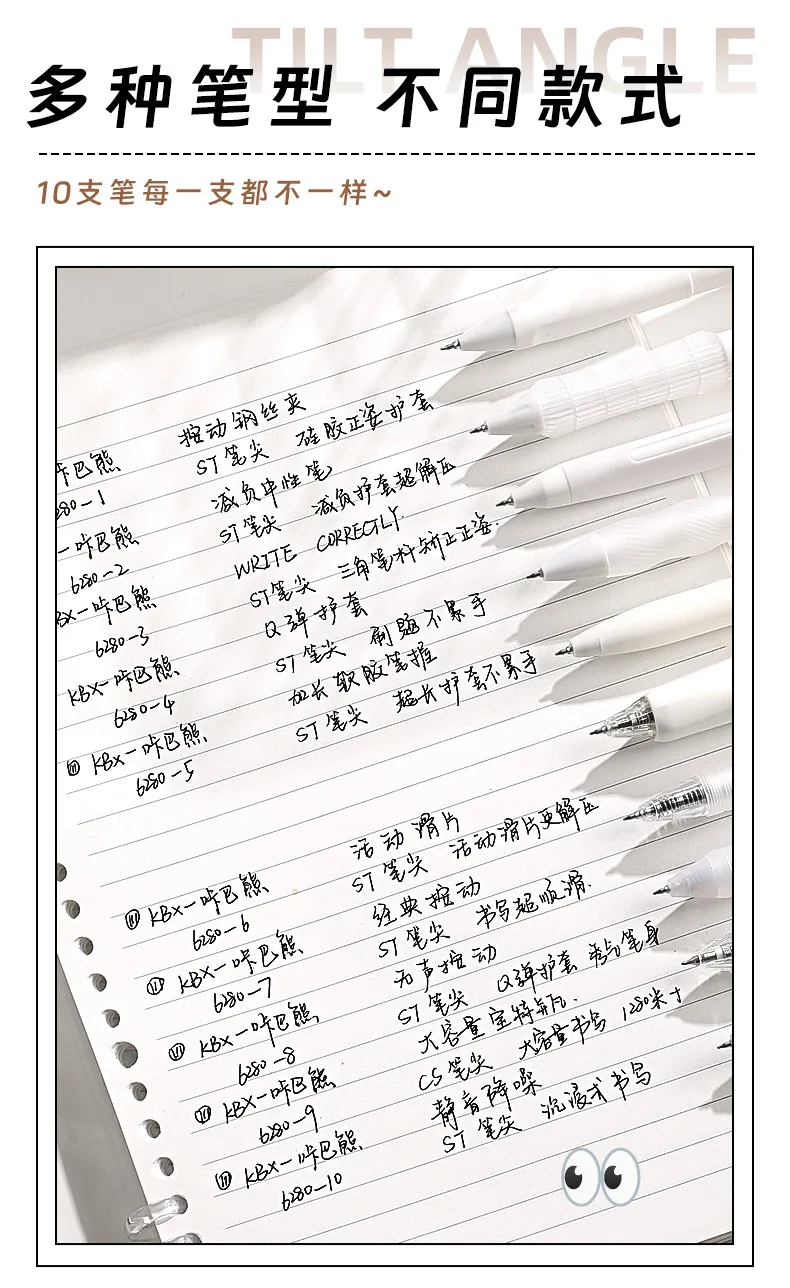 TILT ANGLE
多种笔型 不同款式
10支笔每一支都不一样~
按动钢丝夹
咔巴熊 ST笔尖 硅胶正姿护套
6280-1 减负中性笔
咔巴熊 ST笔尖 减负护套超解压
6280-2 WRITE CORRECTLY
KBX-咔巴熊 ST笔尖 三角笔杆矫正正姿.
6280-3 Q弹护套
KBX-咔巴熊 ST笔尖 刷题不累手
6280-4 加长软胶笔握
KBX-咔巴熊 ST笔尖 超长护套不累手
6280-5
活动滑片
KBX-咔巴熊 ST笔尖 活动滑片更解压
6280-6 经典按动
KBX-咔巴熊 ST笔尖 书写超顺滑.
6280-7 无声按动
KBX-咔巴熊 ST笔尖 Q弹护套 秀气笔身
6280-8 大容量宝特瓶.
KBX-咔巴熊 CS笔尖 大容量书写 1280米+
6280-9 静音降噪
KBX-咔巴熊 ST笔尖 沉浸式书写
6280-10